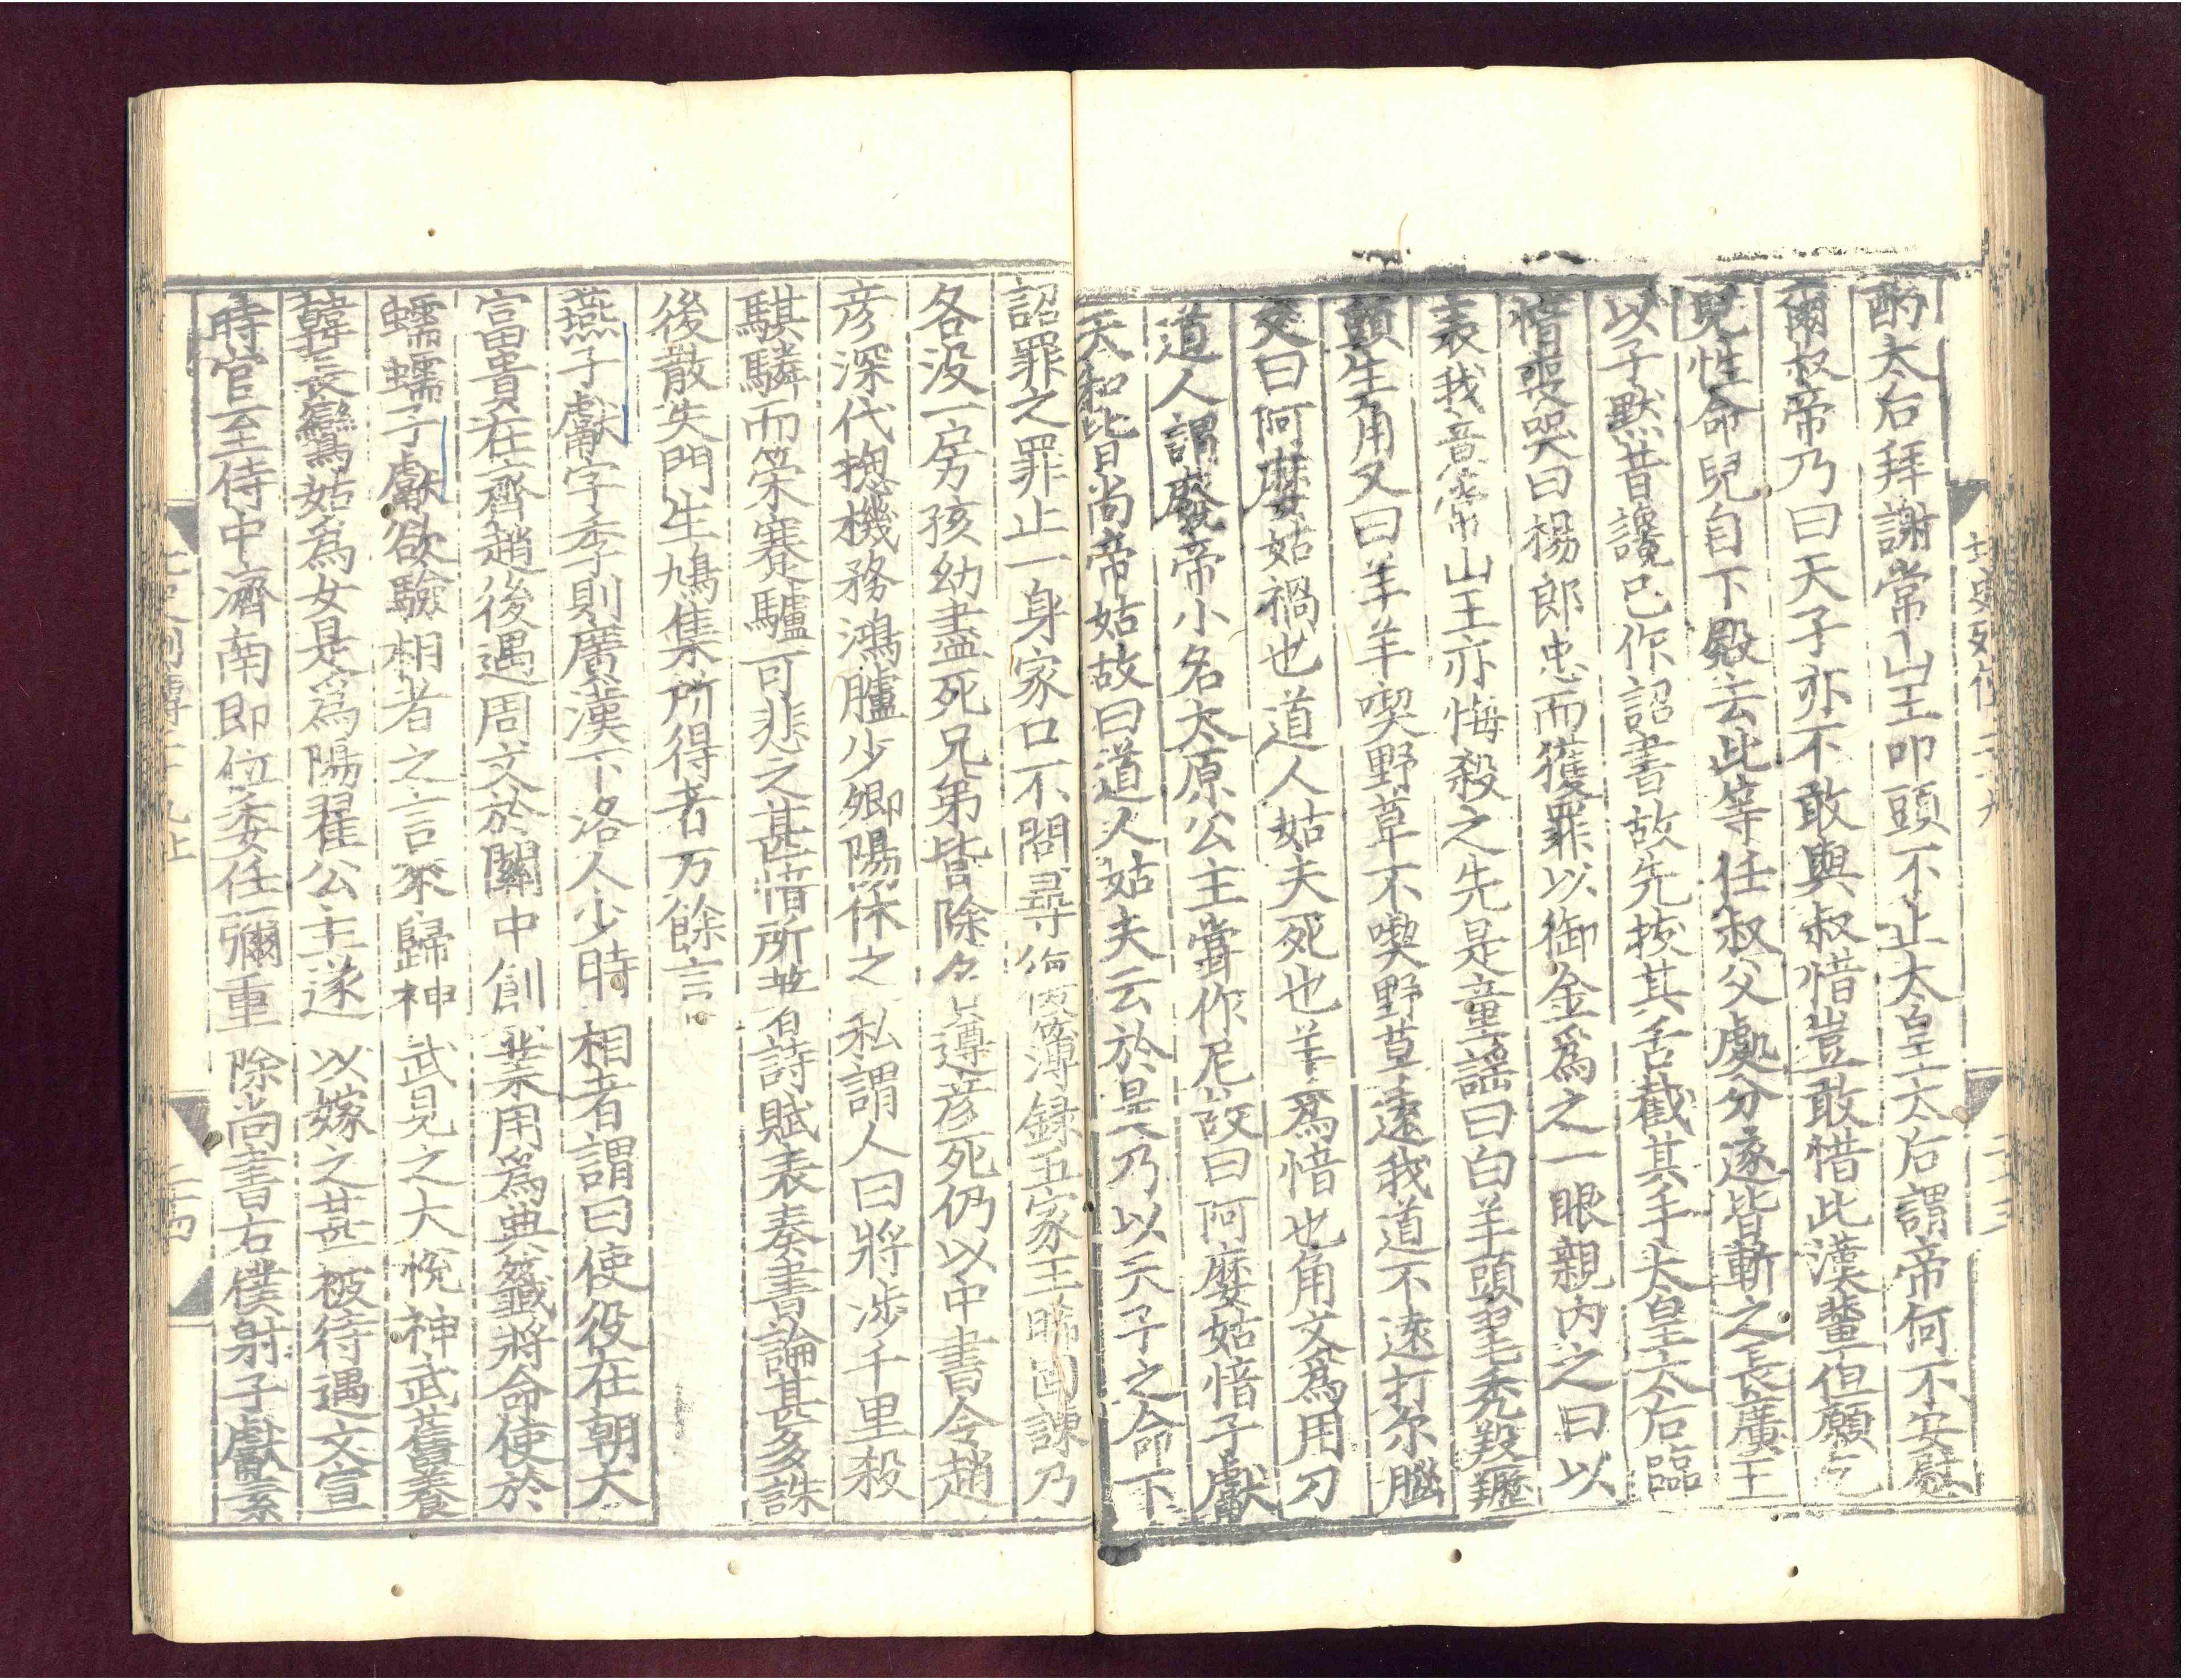 酌太后拜謝常山王叩頭不止太皇太后謂帝何不安慰
爾叔帝乃曰天子亦不敢與叔惜豈敢惜此漢輩但願乞
兒性命兒自下殿去此等任叔父處分遂皆斬之長廣王
以子默昔讒己作詔書故先拔其舌截其手太皇太后臨
愔喪哭曰楊郎忠而獲罪以御金為之一眼親內之曰以
表我意常山王亦悔殺之先是童謠曰白羊頭𣯶禿羖䍽
頭生角又曰羊羊喫野草不喫野草遠我道不遠打尔腦
又曰阿麼姑禍也道人姑夫死也羊為愔也角文為用刀
道人謂廢帝小名太原公主嘗作尼故曰阿麼姑愔子獻
天和皆尚帝姑故曰道人姑夫云於是乃以天子之命下
詔罪之罪止一身家口不問尋復簿録五家王晞固諫乃
各没一房孩幼盡死兄弟皆除名遵彥死仍以中書令趙
彥深代揔機務鴻臚少卿陽休之私謂人曰將涉千里殺
騏驎而策蹇驢可悲之甚愔所著詩賦表奏書論甚多誅
後散失門生鳩集所得者万餘言
燕子獻字季則廣漢下洛人少時相者謂曰使役在朝大
富貴在齊趙後遇周文於關中創業用為典籤將命使於
蠕蠕子獻欲驗相者之言來歸神武見之大悅神武舊養
韓長鸞姑為女是為陽翟公主遂以嫁之甚被待遇文宣
時官至侍中濟南即位委任彌重除尚書右僕射子獻素
北史列傳二十九
二十三
北史列傳二十九上
二十四